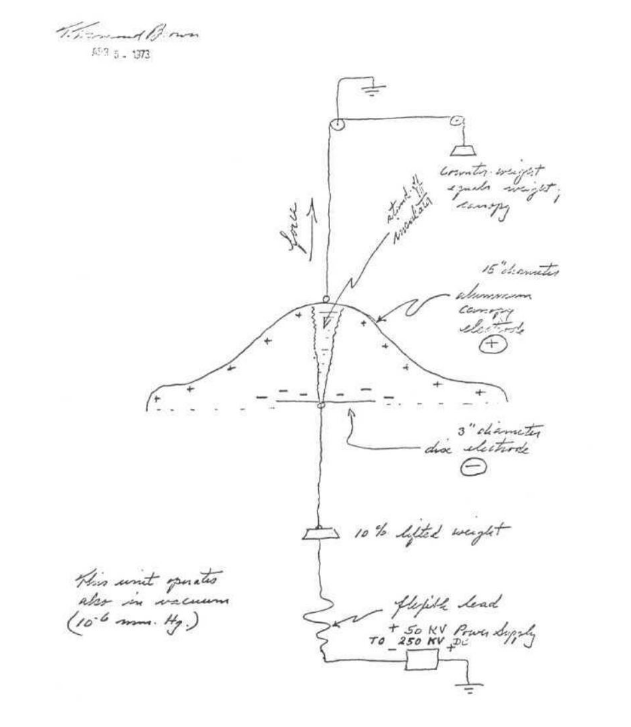 T. Townsend Brown
APR 5 - 1973
counter-weight
equals weight of
canopy
force
stand-off
insulator
15" diameter
aluminum
canopy
electrode
+
3" diameter
disc electrode
−
10% lifted weight
This unit operates
also in vacuum
(10-6 mm. Hg.)
flexible lead
+ 50 KV Power Supply
TO 250 KV DC